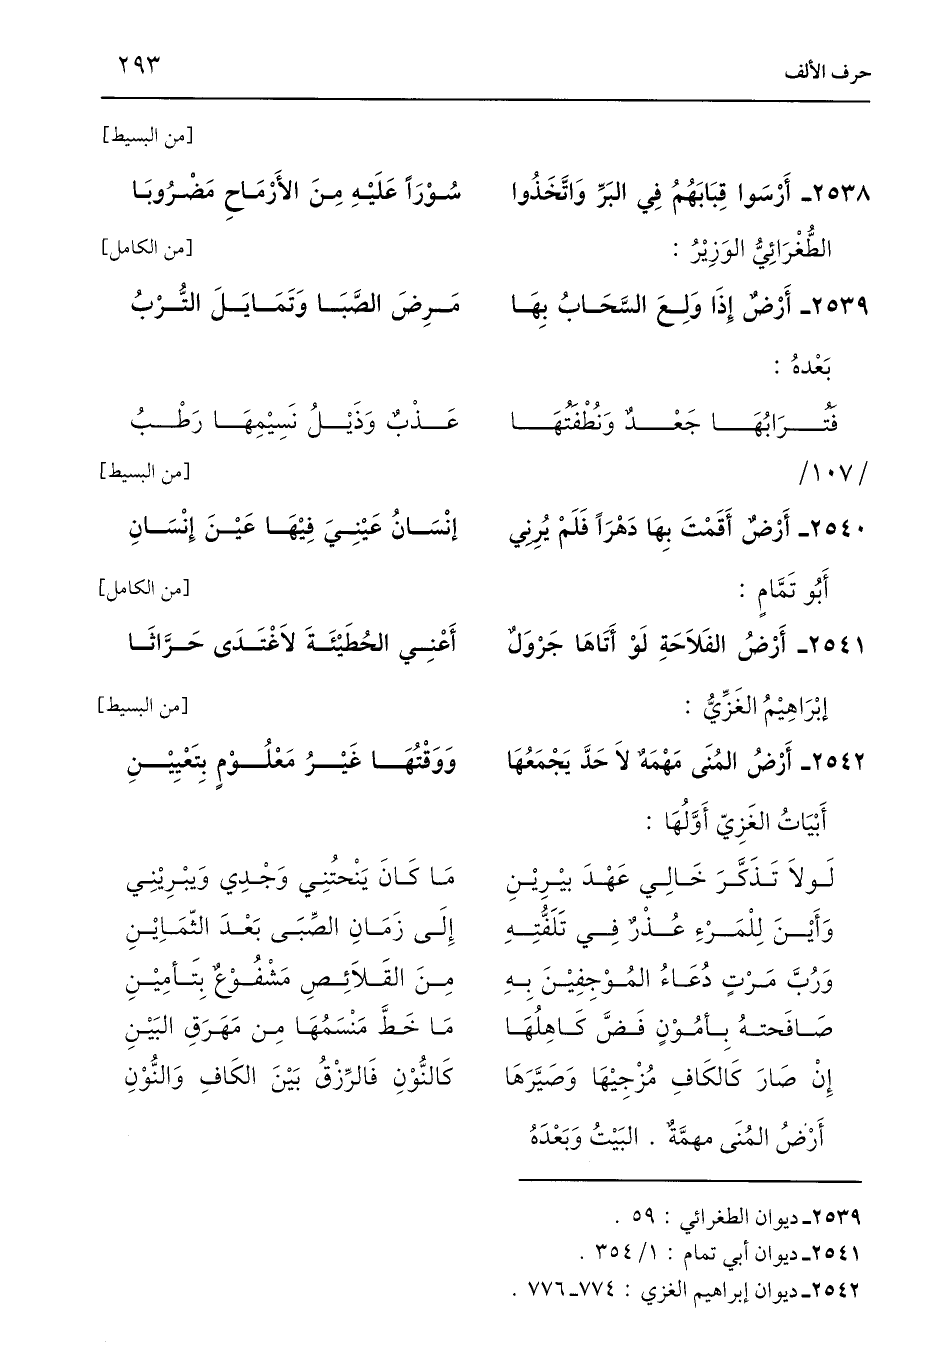 حرف الألف ٢٩٣
[من البسيط]
٢٥٣٨ـ أَرْسَوا قِبَابَهُمُ فِي البَرِّ وَاتَّخَذُوا سُوْرَاً عَلَيْهِ مِنَ الأَرْمَاحِ مَضْرُوبَا
الطُّغْرَائِيُّ الوَزِيْرُ : [من الكامل]
٢٥٣٩ـ أَرْضٌ إِذَا وَلِعَ السَّحَابُ بِهَا مَرِضَ الصَّبَا وَتَمَايَلَ التُّرْبُ
بَعْدهُ :
فَتُرَابُهَا جَعْدٌ وَنُطْفَتُهَا عَذْبٌ وَذَيْلُ نَسِيْمِهَا رَطْبُ
/١٠٧/ [من البسيط]
٢٥٤٠ـ أَرْضٌ أَقَمْتَ بِهَا دَهْرَاً فَلَمْ يُرِنِي إِنْسَانُ عَيْنِيَ فِيْهَا عَيْنَ إِنْسَانِ
أَبُو تَمَّامٍ : [من الكامل]
٢٥٤١ـ أَرْضُ الفَلَاحَةِ لَوْ أَتَاهَا جَرْوَلٌ أَعْنِي الحُطَيْئَةَ لاَغْتَدَى حَرَّاثَا
إِبْرَاهِيْمُ الغَزِّيُّ : [من البسيط]
٢٥٤٢ـ أَرْضُ المُنَى مَهْمَهٌ لاَ حَدَّ يَجْمَعُهَا وَوَقْتُهَا غَيْرُ مَعْلُوْمٍ بِتَعْيِيْنِ
أَبْيَاتُ الغَزِيّ أَوَّلُهَا :
لَولاَ تَذَكَّرَ خَالِي عَهْدَ بيْرِيْنِ مَا كَانَ يَنْحتُنِي وَجْدِي وَيَبْرِيْنِي
وَأَيْنَ لِلْمَرْءِ عُذْرٌ فِي تَلَفُّتِهِ إِلَى زَمَانِ الصِّبَى بَعْدَ الثّمَايْنِ
وَرُبَّ مَرْتٍ دُعَاءُ المُوْجِفِيْنَ بِهِ مِنَ القَلاَئِصِ مَشْفُوْعٌ بِتَأمِيْنِ
صَافَحتهُ بِأَمُوْنٍ فَضَّ كَاهِلُهَا مَا خَطَّ مَنْسَمُهَا مِن مَهْرَقِ البَيْنِ
إِنْ صَارَ كَالكَافِ مُزْجِيْهَا وَصَيَّرَهَا كَالنُّوْنِ فَالرِّزْقُ بَيْنَ الكَافِ وَالنُّوْنِ
أَرْضُ المُنَى مهمَّةٌ . البَيْتُ وَبَعْدَهُ
٢٥٣٩ـ ديوان الطغرائي : ٥٩ .
٢٥٤١ـ ديوان أبي تمام : ١/ ٣٥٤ .
٢٥٤٢ـ ديوان إبراهيم الغزي : ٧٧٤ـ ٧٧٦ .